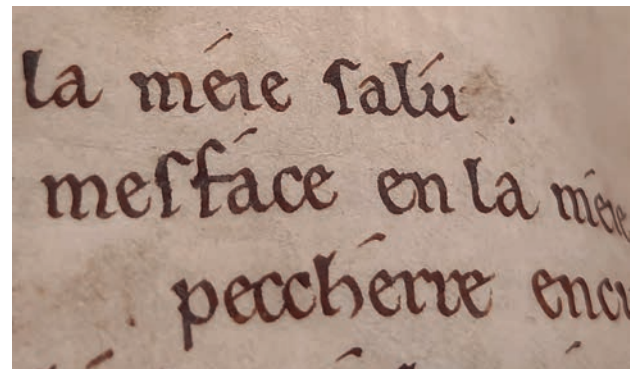 la méıe ſalú .
meſfáce en la méıe
peccheŕre encu